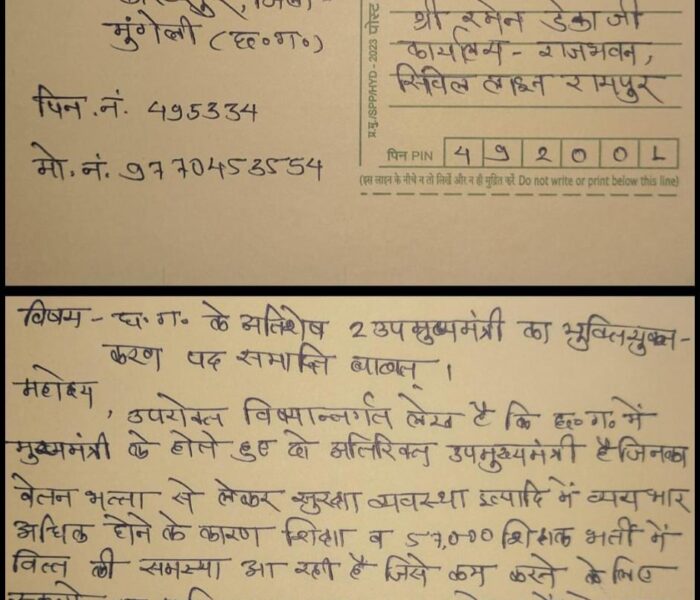 मुंगेली (छ०ग०)
पिन.नं. 495334
मो.नं. 9770453554
प्र.मु./SPP/HYD - 2023 पोस्ट
श्री रमेन डेका जी
कार्यालय - राजभवन,
सिविल लाइन रायपुर
पिन PIN 4 9 2 0 0 1
(इस लाइन के नीचे न तो लिखें और न ही मुद्रित करें Do not write or print below this line)
विषय - छ.ग. के अतिशेष 2 उपमुख्यमंत्री का युक्तियुक्त-
करण पद समाप्ति बाबत् ।
महोदय,
उपरोक्त विषयान्तर्गत लेख है कि छ०ग० में
मुख्यमंत्री के होते हुए दो अतिरिक्त उपमुख्यमंत्री है जिनका
वेतन भत्ता से लेकर सुरक्षा व्यवस्था इत्यादि में व्यय भार
अधिक होने के कारण शिक्षा व 57,000 शिक्षक भर्ती में
वित्त की समस्या आ रही है जिसे कम करने के लिए